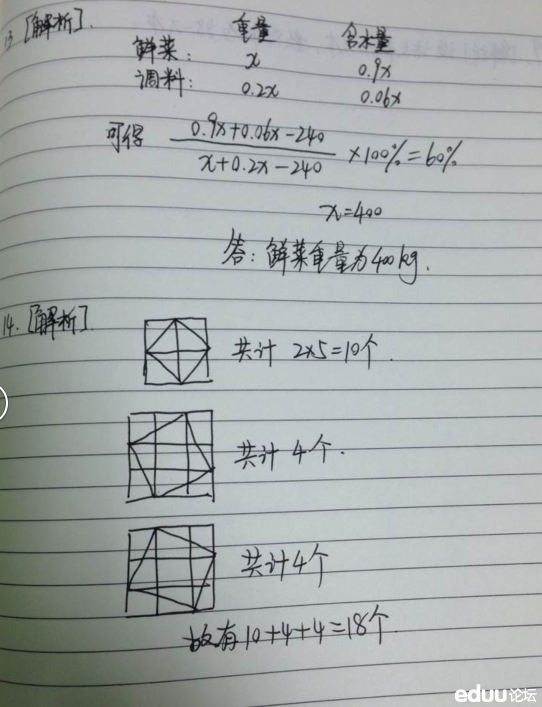 13. [解析].
重量 含水量
鲜菜: x 0.9x
调料: 0.2x 0.06x
可得 (0.9x+0.06x-240)/(x+0.2x-240) ×100%=60%
x=400
答: 鲜菜重量为400kg.
14. [解析].
共计 2×5=10个.
共计 4个.
共计4个
故有10+4+4=18个.
eduu论坛